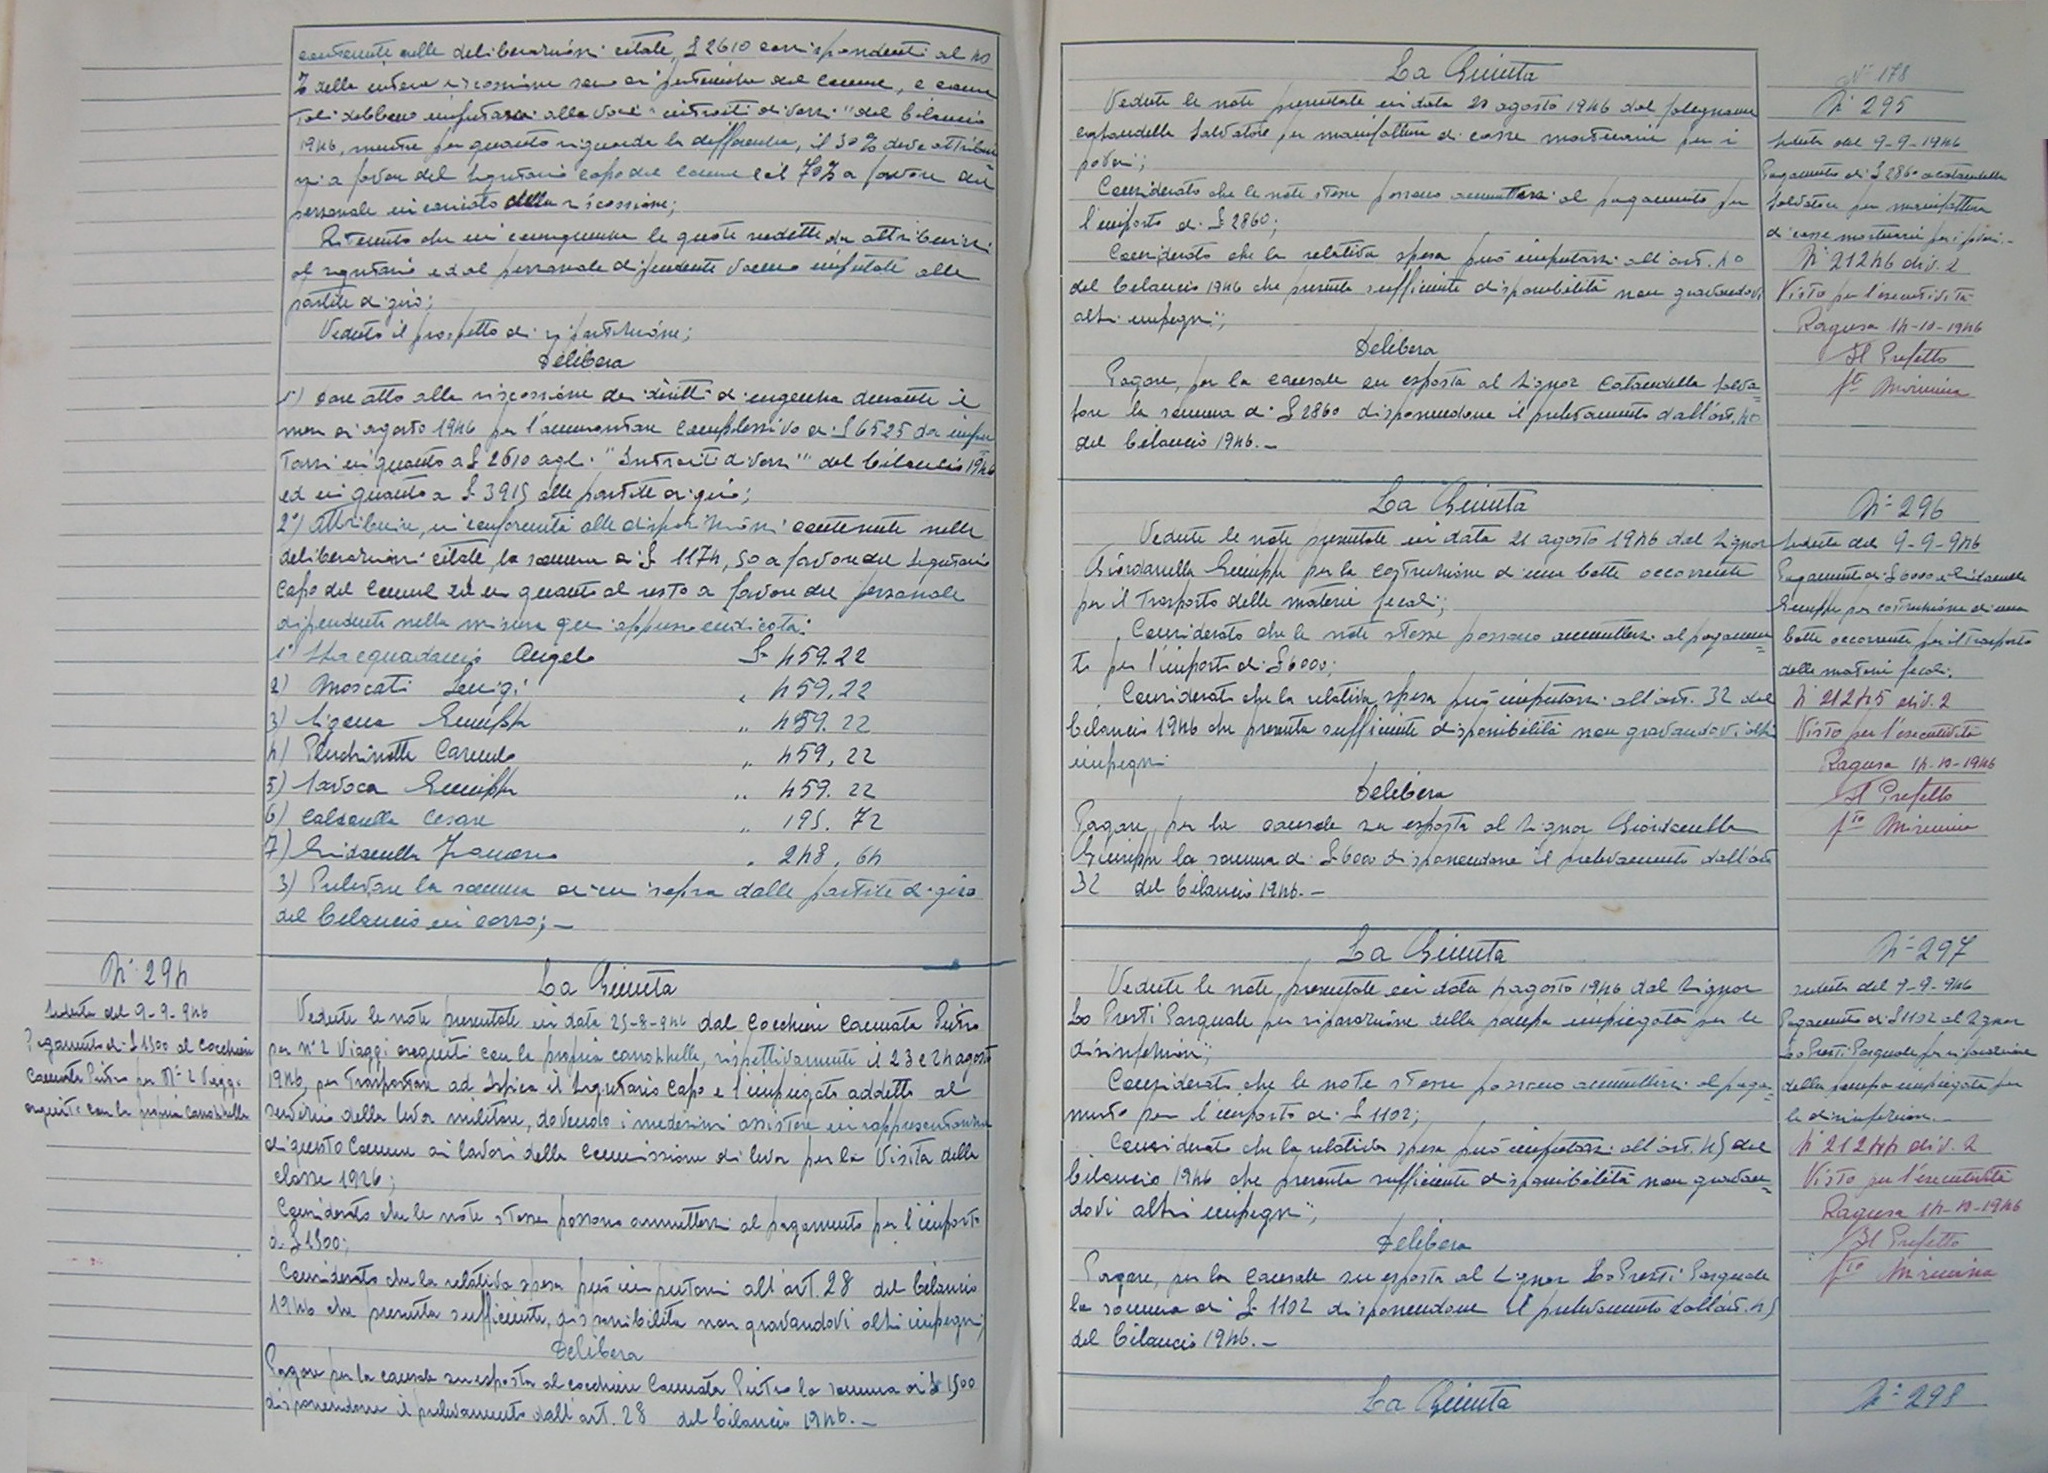 contenute nelle deliberazioni citate, £ 2610 corrispondenti al 40
% della intera riscossione sono di pertinenza del comune, e come
tali debbono imputarsi alla voce "introiti diversi" del bilancio
1946, mentre per quanto riguarda la differenza, il 30% deve attribuir
si a favore del Segretario capo del comune e il 70% a favore del
personale incaricato della riscossione;
Ritenuto che in conseguenza le quote suddette da attribuirsi
al segretario ed al personale dipendente vanno imputate alle
partite di giro;
Veduto il prospetto di ripartizione;
Delibera
1°) Dare atto alla riscossione dei diritti d'urgenza durante il
mese di agosto 1946 per l'ammontare complessivo di £ 6525 da impu
tarsi in quanto a £ 2610 agli "Introiti diversi" del bilancio 1946
ed in quanto a £ 3915 alle partite di giro;
2°) Attribuire, in conformità alle disposizioni contenute nelle
deliberazioni citate, la somma di £ 1174,50 a favore del Segretario
Capo del Comune ed in quanto al resto a favore del personale
dipendente nella misura qui appresso indicata:
1° Stracquadanio Angelo £ 459.22
2) Moscati Luigi " 459,22
3) Sigona Giuseppe " 459.22
4) Pluchinotta Carmelo " 459,22
5) Savoca Giuseppe " 459.22
6) Calsarella Cesare " 195.72
7) Giordanella Francesco " 248,64
3) Prelevare la somma di cui sopra dalle partite di giro
del bilancio in corso; -
N° 294
Seduta del 9-9-946
Pagamento di £ 1500 al cocchiere
Cannata Pietro per N° 2 viaggi
eseguiti con la propria carozzella
La Giunta
Vedute le note presentate in data 25-8-946 dal cocchiere Cannata Pietro
per n° 2 viaggi eseguiti con la propria carozzella, rispettivamente il 23 e 24 agosto
1946, per trasportare ad Ispica il Segretario Capo e l'impiegato addetto al
servizio della leva militare, dovendo i medesimi assistere in rappresentanza
di questo Comune ai lavori della Commissione di leva per la visita della
classe 1926;
Considerato che le note stesse possono ammettersi al pagamento per l'importo
di £ 1500;
Considerato che la relativa spesa può imputarsi all'art. 28 del bilancio
1946 che presenta sufficiente disponibilità non gravandovi altri impegni;
Delibera
Pagare per la causale su esposta al cocchiere Cannata Pietro la somma di £ 1500
disponendone il prelevamento dall'art. 28 del bilancio 1946. -
La Giunta
Vedute le note presentate in data 21 agosto 1946 dal falegname
Cataudella Salvatore per manifattura di casse mortuarie per i
poveri;
Considerato che le note stesse possono ammettersi al pagamento per
l'importo di £ 2860;
Considerato che la relativa spesa può imputarsi all'art. 40
del bilancio 1946 che presenta sufficiente disponibilità non gravandovi
altri impegni;
Delibera
Pagare, per la causale su esposta al Signor Cataudella Salva=
tore la somma di £ 2860 disponendone il prelevamento dall'art. 40
del bilancio 1946. -
N° 178
N° 295
Seduta del 9-9-1946
Pagamento di £ 2860 a Cataudella
Salvatore per manifattura
di casse mortuarie per i poveri. -
N° 21246 div. 2
Visto per l'esecutività
Ragusa 14-10-1946
Il Prefetto
fto Mirmina
La Giunta
Vedute le note presentate in data 21 agosto 1946 dal Signor
Giordanella Giuseppe per la costruzione di una botte occorrente
per il trasporto delle materie fecali;
Considerato che le note stesse possono ammettersi al pagamen=
to per l'importo di £ 6000;
Considerato che la relativa spesa può imputarsi all'art. 32 del
bilancio 1946 che presenta sufficiente disponibilità non gravandovi altri
impegni
Delibera
Pagare, per la causale su esposta al Signor Giordanella
Giuseppe la somma di £ 6000 disponendone il prelevamento dall'art.
32 del bilancio 1946. -
N° 296
Seduta del 9-9-946
Pagamento di £ 6000 a Giordanella
Giuseppe per costruzione di una
botte occorrente per il trasporto
delle materie fecali.
N° 21245 div. 2
Visto per l'esecutività
Ragusa 14-10-1946
Il Prefetto
fto Mirmina
La Giunta
Vedute le note presentate in data 4 agosto 1946 dal Signor
Lo Presti Pasquale per riparazione della pompa impiegata per le
disinfezioni;
Considerato che le note stesse possono ammettersi al paga=
mento per l'importo di £ 1102;
Considerato che la relativa spesa può imputarsi all'art. 45 del
bilancio 1946 che presenta sufficiente disponibilità non gravan=
dovi altri impegni;
Delibera
Pagare, per la causale su esposta al Signor Lo Presti Pasquale
la somma di £ 1102 disponendone il prelevamento dall'art. 45
del bilancio 1946. -
N° 297
Seduta del 9-9-946
Pagamento di £ 1102 al Signor
Lo Presti Pasquale per riparazione
della pompa impiegata per
le disinfezioni. -
N° 21244 div. 2
Visto per l'esecutività
Ragusa 14-10-1946
Il Prefetto
fto Mirmina
La Giunta
N° 298